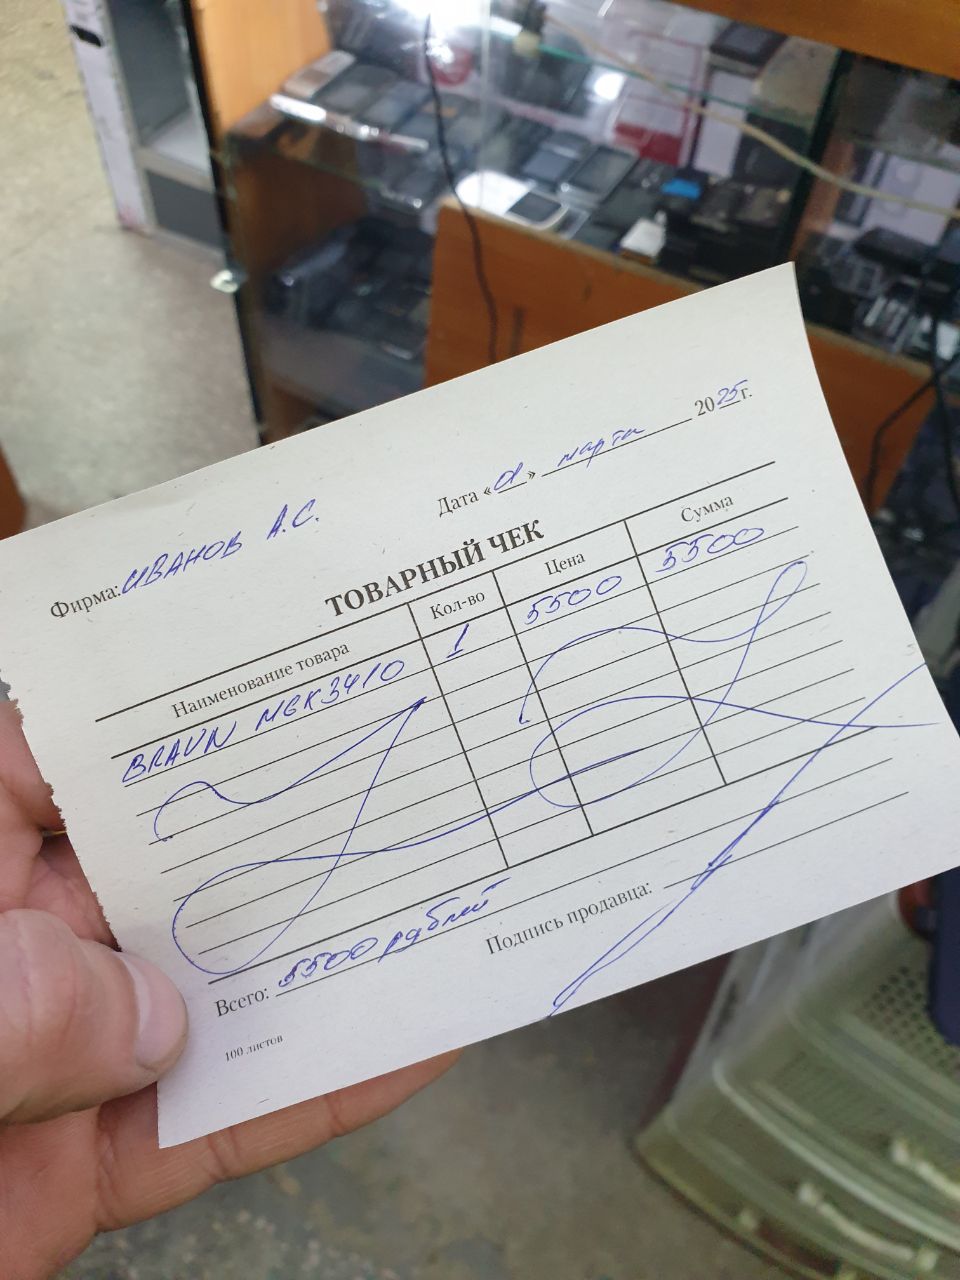 Дата «01» марта 2025 г.
Фирма: ИВАНОВ А.С.
ТОВАРНЫЙ ЧЕК
Наименование товара Кол-во Цена Сумма
BRAUN MGK3410 1 5500 5500
Всего: 5500 рублей
Подпись продавца:
100 листов